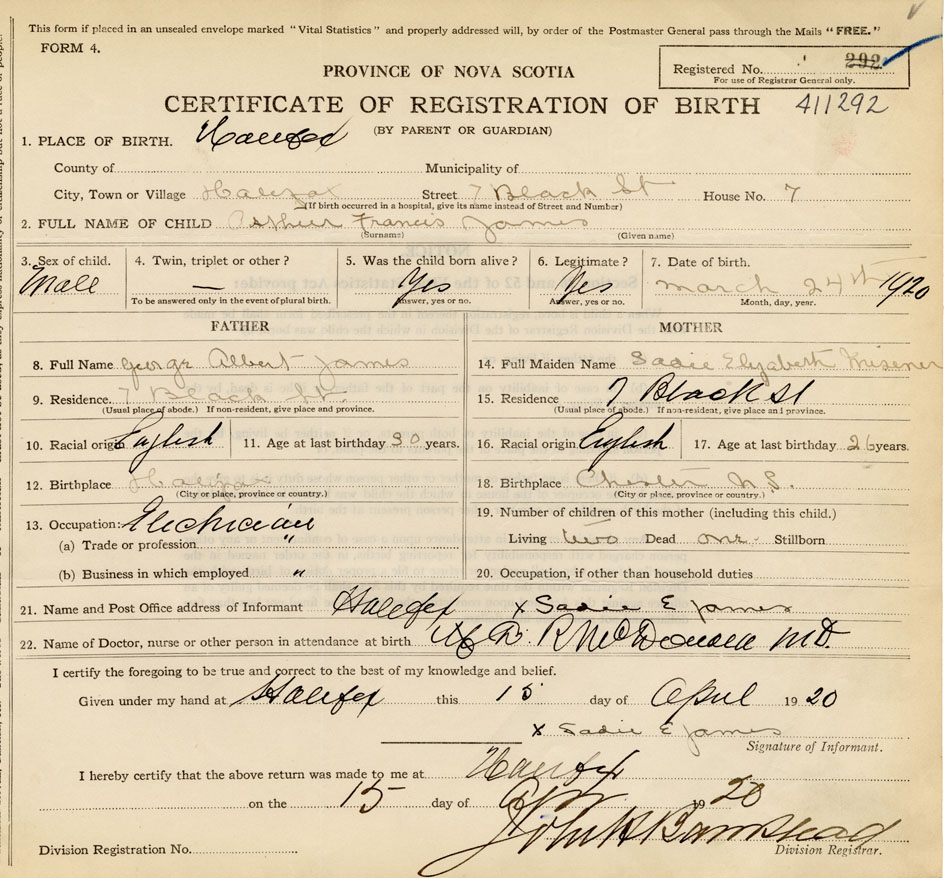 This form if placed in an unsealed envelope marked "Vital Statistics" and properly addressed will, by order of the Postmaster General pass through the Mails "FREE."
FORM 4.
Registered No. 292
For use of Registrar General only.
PROVINCE OF NOVA SCOTIA
CERTIFICATE OF REGISTRATION OF BIRTH 411292
(BY PARENT OR GUARDIAN)
1. PLACE OF BIRTH. Halifax
County of Municipality of
City, Town or Village Halifax Street 7 Black St House No. 7
(If birth occurred in a hospital, give its name instead of Street and Number)
2. FULL NAME OF CHILD Arthur Francis James
(Surname) (Given name)
3. Sex of child. 4. Twin, triplet or other? 5. Was the child born alive? 6. Legitimate? 7. Date of birth.
Male — Yes Yes March 24th 1920
To be answered only in the event of plural birth. Answer, yes or no. Answer, yes or no. Month, day, year.
FATHER
8. Full Name George Albert James
9. Residence. 7 Black St.
(Usual place of abode.) If non-resident, give place and province.
10. Racial origin English 11. Age at last birthday 30 years.
12. Birthplace Halifax
(City or place, province or country.)
13. Occupation: Electrician
(a) Trade or profession "
(b) Business in which employed "
MOTHER
14. Full Maiden Name Sadie Elizabeth
15. Residence 7 Black St
(Usual place of abode.) If non-resident, give place and province.
16. Racial origin English 17. Age at last birthday 26 years.
18. Birthplace Chester N.S.
(City or place, province or country.)
19. Number of children of this mother (including this child.)
Living two Dead one Stillborn
20. Occupation, if other than household duties
21. Name and Post Office address of Informant Halifax x Sadie E James
22. Name of Doctor, nurse or other person in attendance at birth McDonald M.D.
I certify the foregoing to be true and correct to the best of my knowledge and belief.
Given under my hand at Halifax this 15 day of April 1920
x Sadie E James
Signature of Informant.
I hereby certify that the above return was made to me at Halifax
on the 15 day of Apr 1920
John H Barnstead
Division Registration No. Division Registrar.